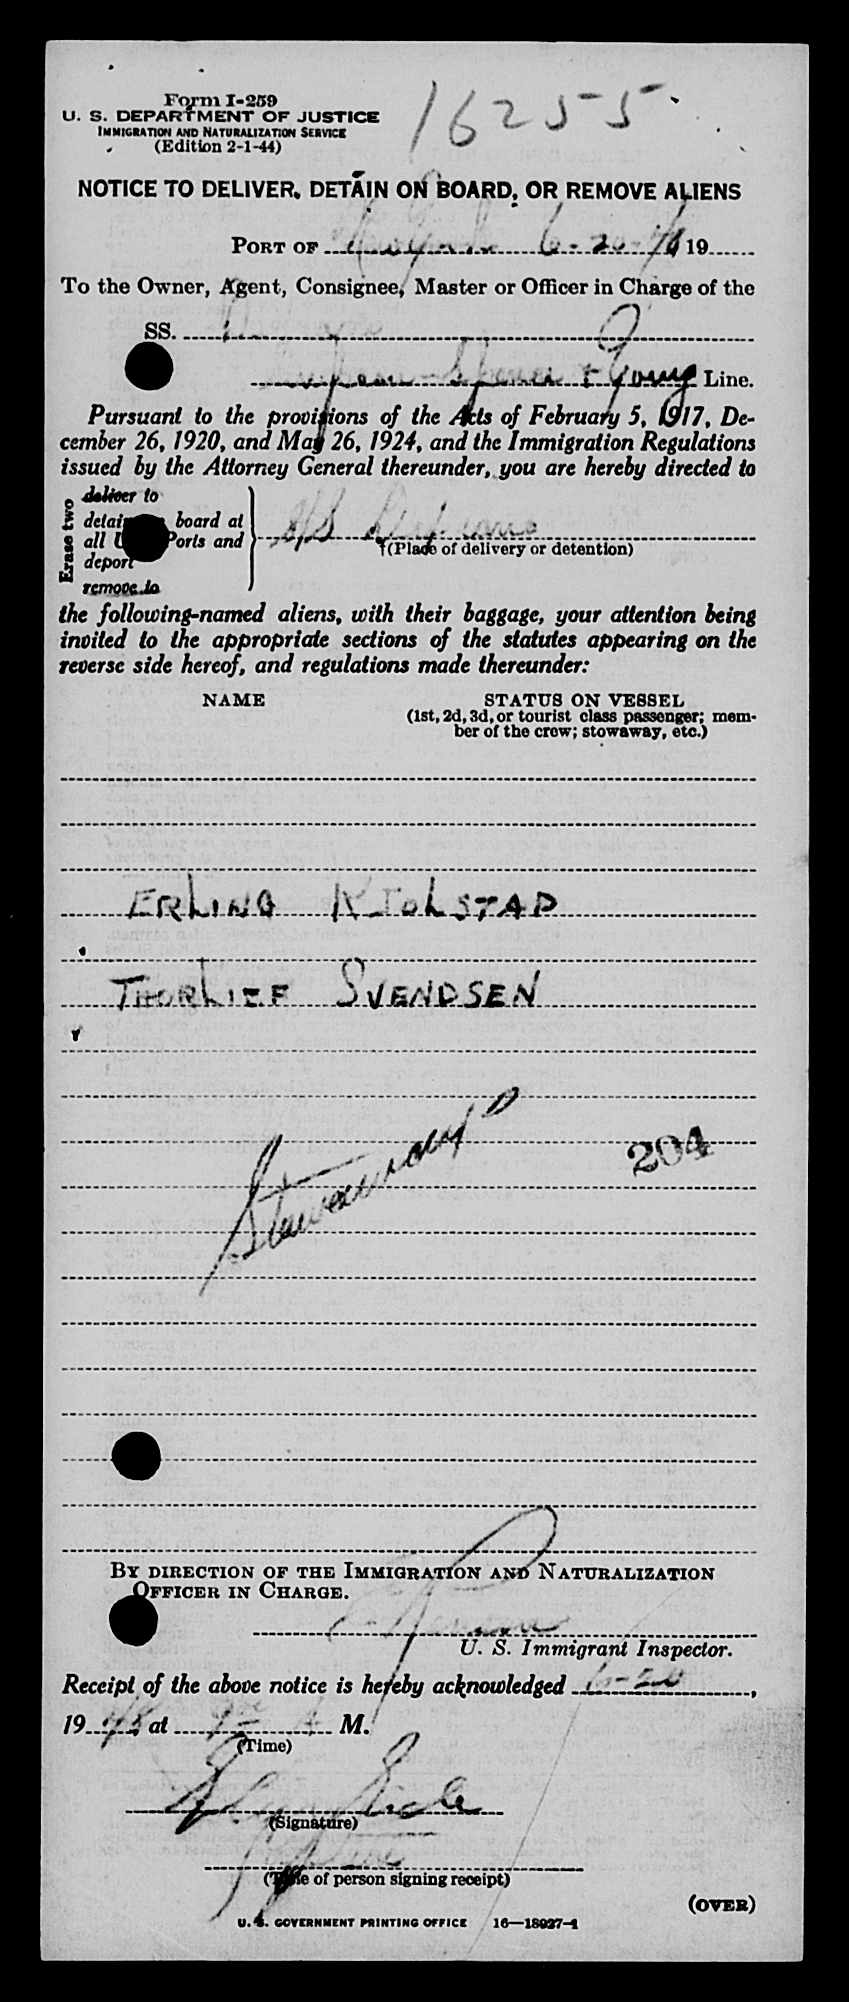 Form I-259
16255
U. S. DEPARTMENT OF JUSTICE
IMMIGRATION AND NATURALIZATION SERVICE
(Edition 2-1-44)
NOTICE TO DELIVER, DETAIN ON BOARD, OR REMOVE ALIENS
PORT OF 6-20-48 19
To the Owner, Agent, Consignee, Master or Officer in Charge of the
SS.
Spence & Young Line.
Pursuant to the provisions of the Acts of February 5, 1917, De-
cember 26, 1920, and May 26, 1924, and the Immigration Regulations
issued by the Attorney General thereunder, you are hereby directed to
Erase two
deliver to
detain board at
all Ports and
deport
remove to
S/S
(Place of delivery or detention)
the following-named aliens, with their baggage, your attention being
invited to the appropriate sections of the statutes appearing on the
reverse side hereof, and regulations made thereunder:
NAME STATUS ON VESSEL
(1st, 2d, 3d, or tourist class passenger; mem-
ber of the crew; stowaway, etc.)
ERLING KJOLSTAD
THORLIEF SVENDSEN
Stowaways
204
BY DIRECTION OF THE IMMIGRATION AND NATURALIZATION
OFFICER IN CHARGE.
U. S. Immigrant Inspector.
Receipt of the above notice is hereby acknowledged 6-20,
1948 at 9 A M.
(Time)
(Signature)
(Title of person signing receipt)
(OVER)
U. S. GOVERNMENT PRINTING OFFICE 16—18927-1